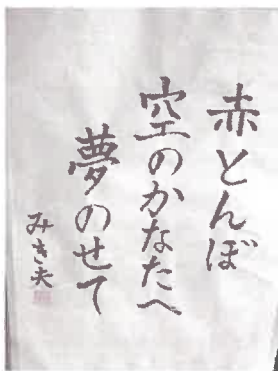 赤とんぼ
空のかなたへ
夢のせて
みき夫